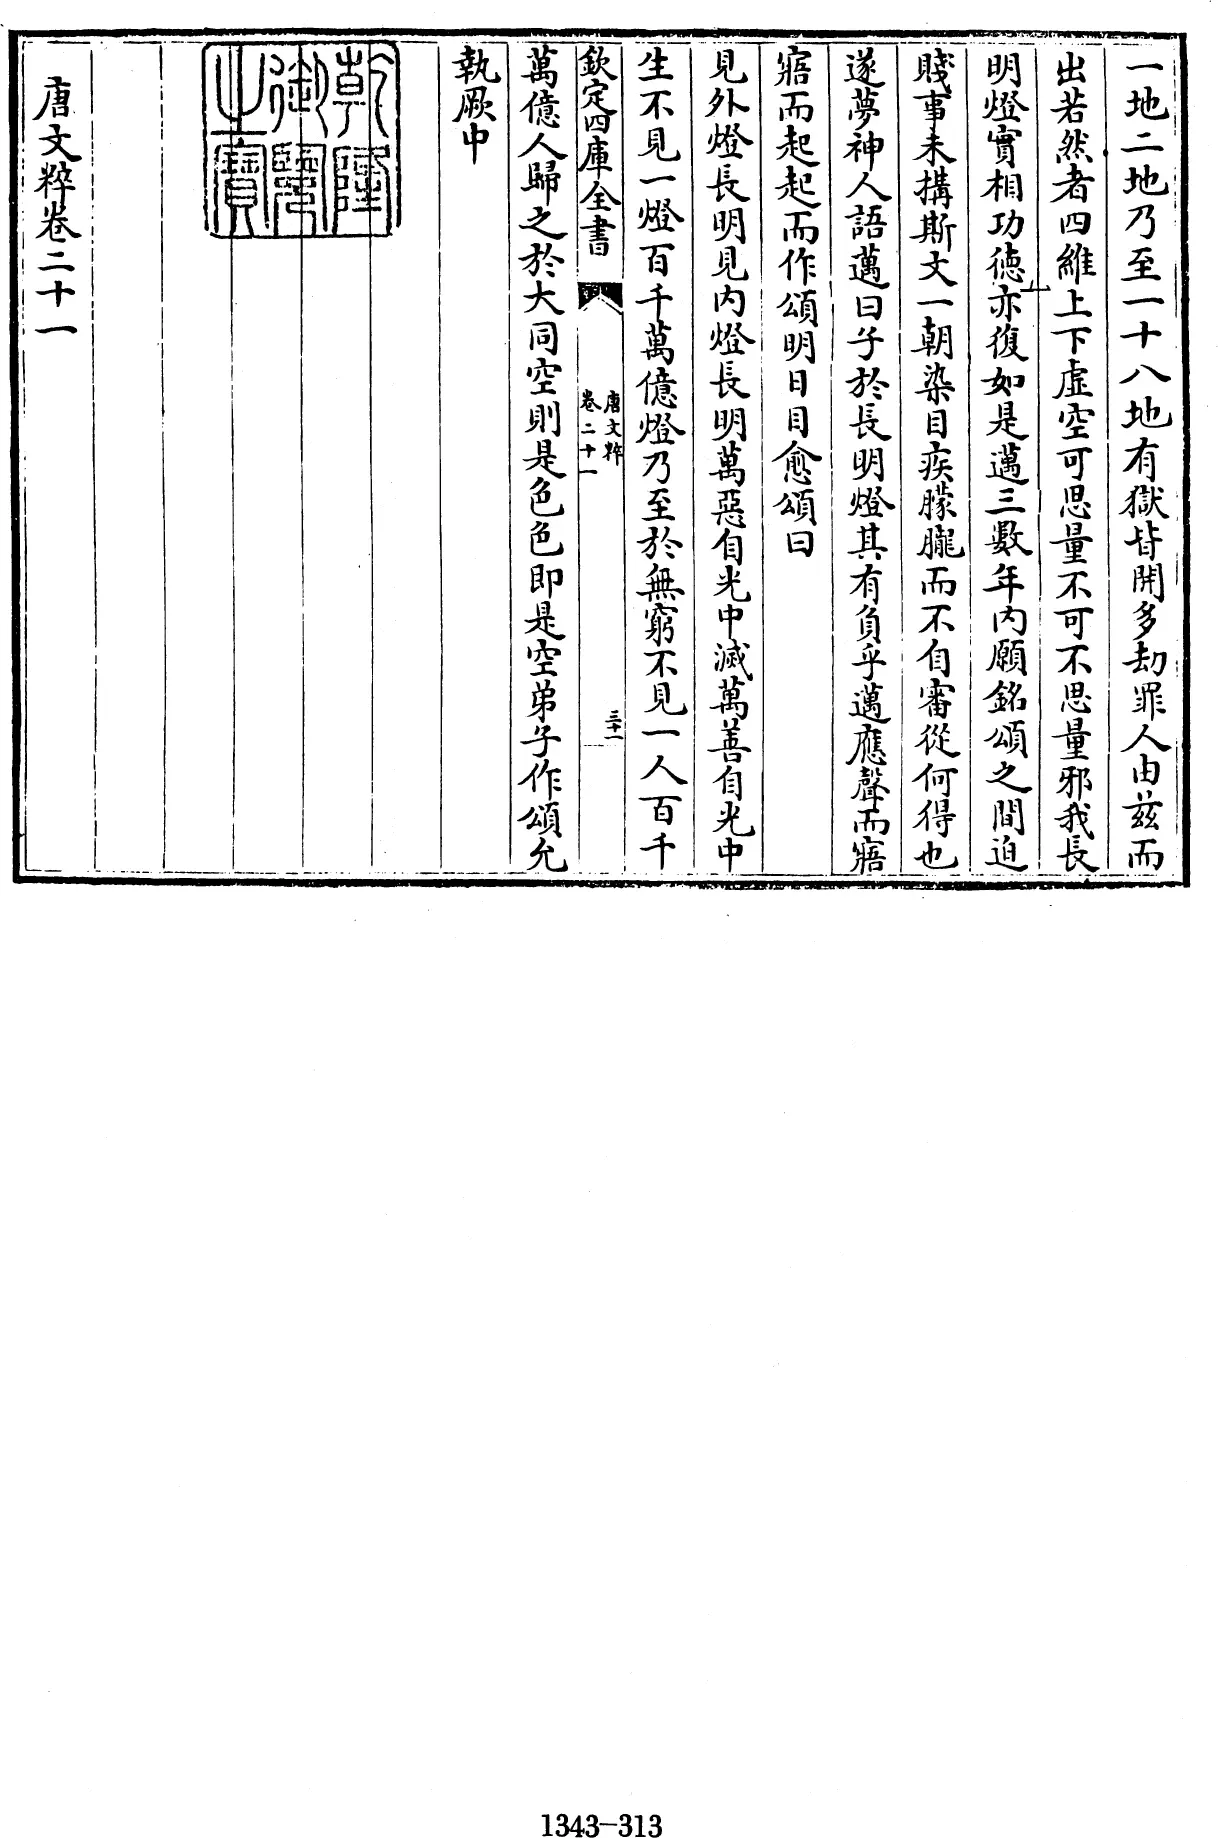 一地二地乃至一十八地有獄皆開多劫罪人由兹而
出若然者四維上下虚空可思量不可不思量邪我長
明燈實相功德亦復如是邁三數年内願銘頌之間迫
賤事未搆斯文一朝染目疾朦朧而不自審從何得也
遂夢神人語邁曰子於長明燈其有負乎邁應聲而寤
寤而起起而作頌明日目愈頌曰
見外燈長明見内燈長明萬惡自光中滅萬善自光中
生不見一燈百千萬億燈乃至於無窮不見一人百千
欽定四庫全書
唐文粹
卷二十一
三十一
萬億人歸之於大同空則是色色即是空弟子作頌允
執厥中
乾隆
御覽
之寶
唐文粹卷二十一
1343-313